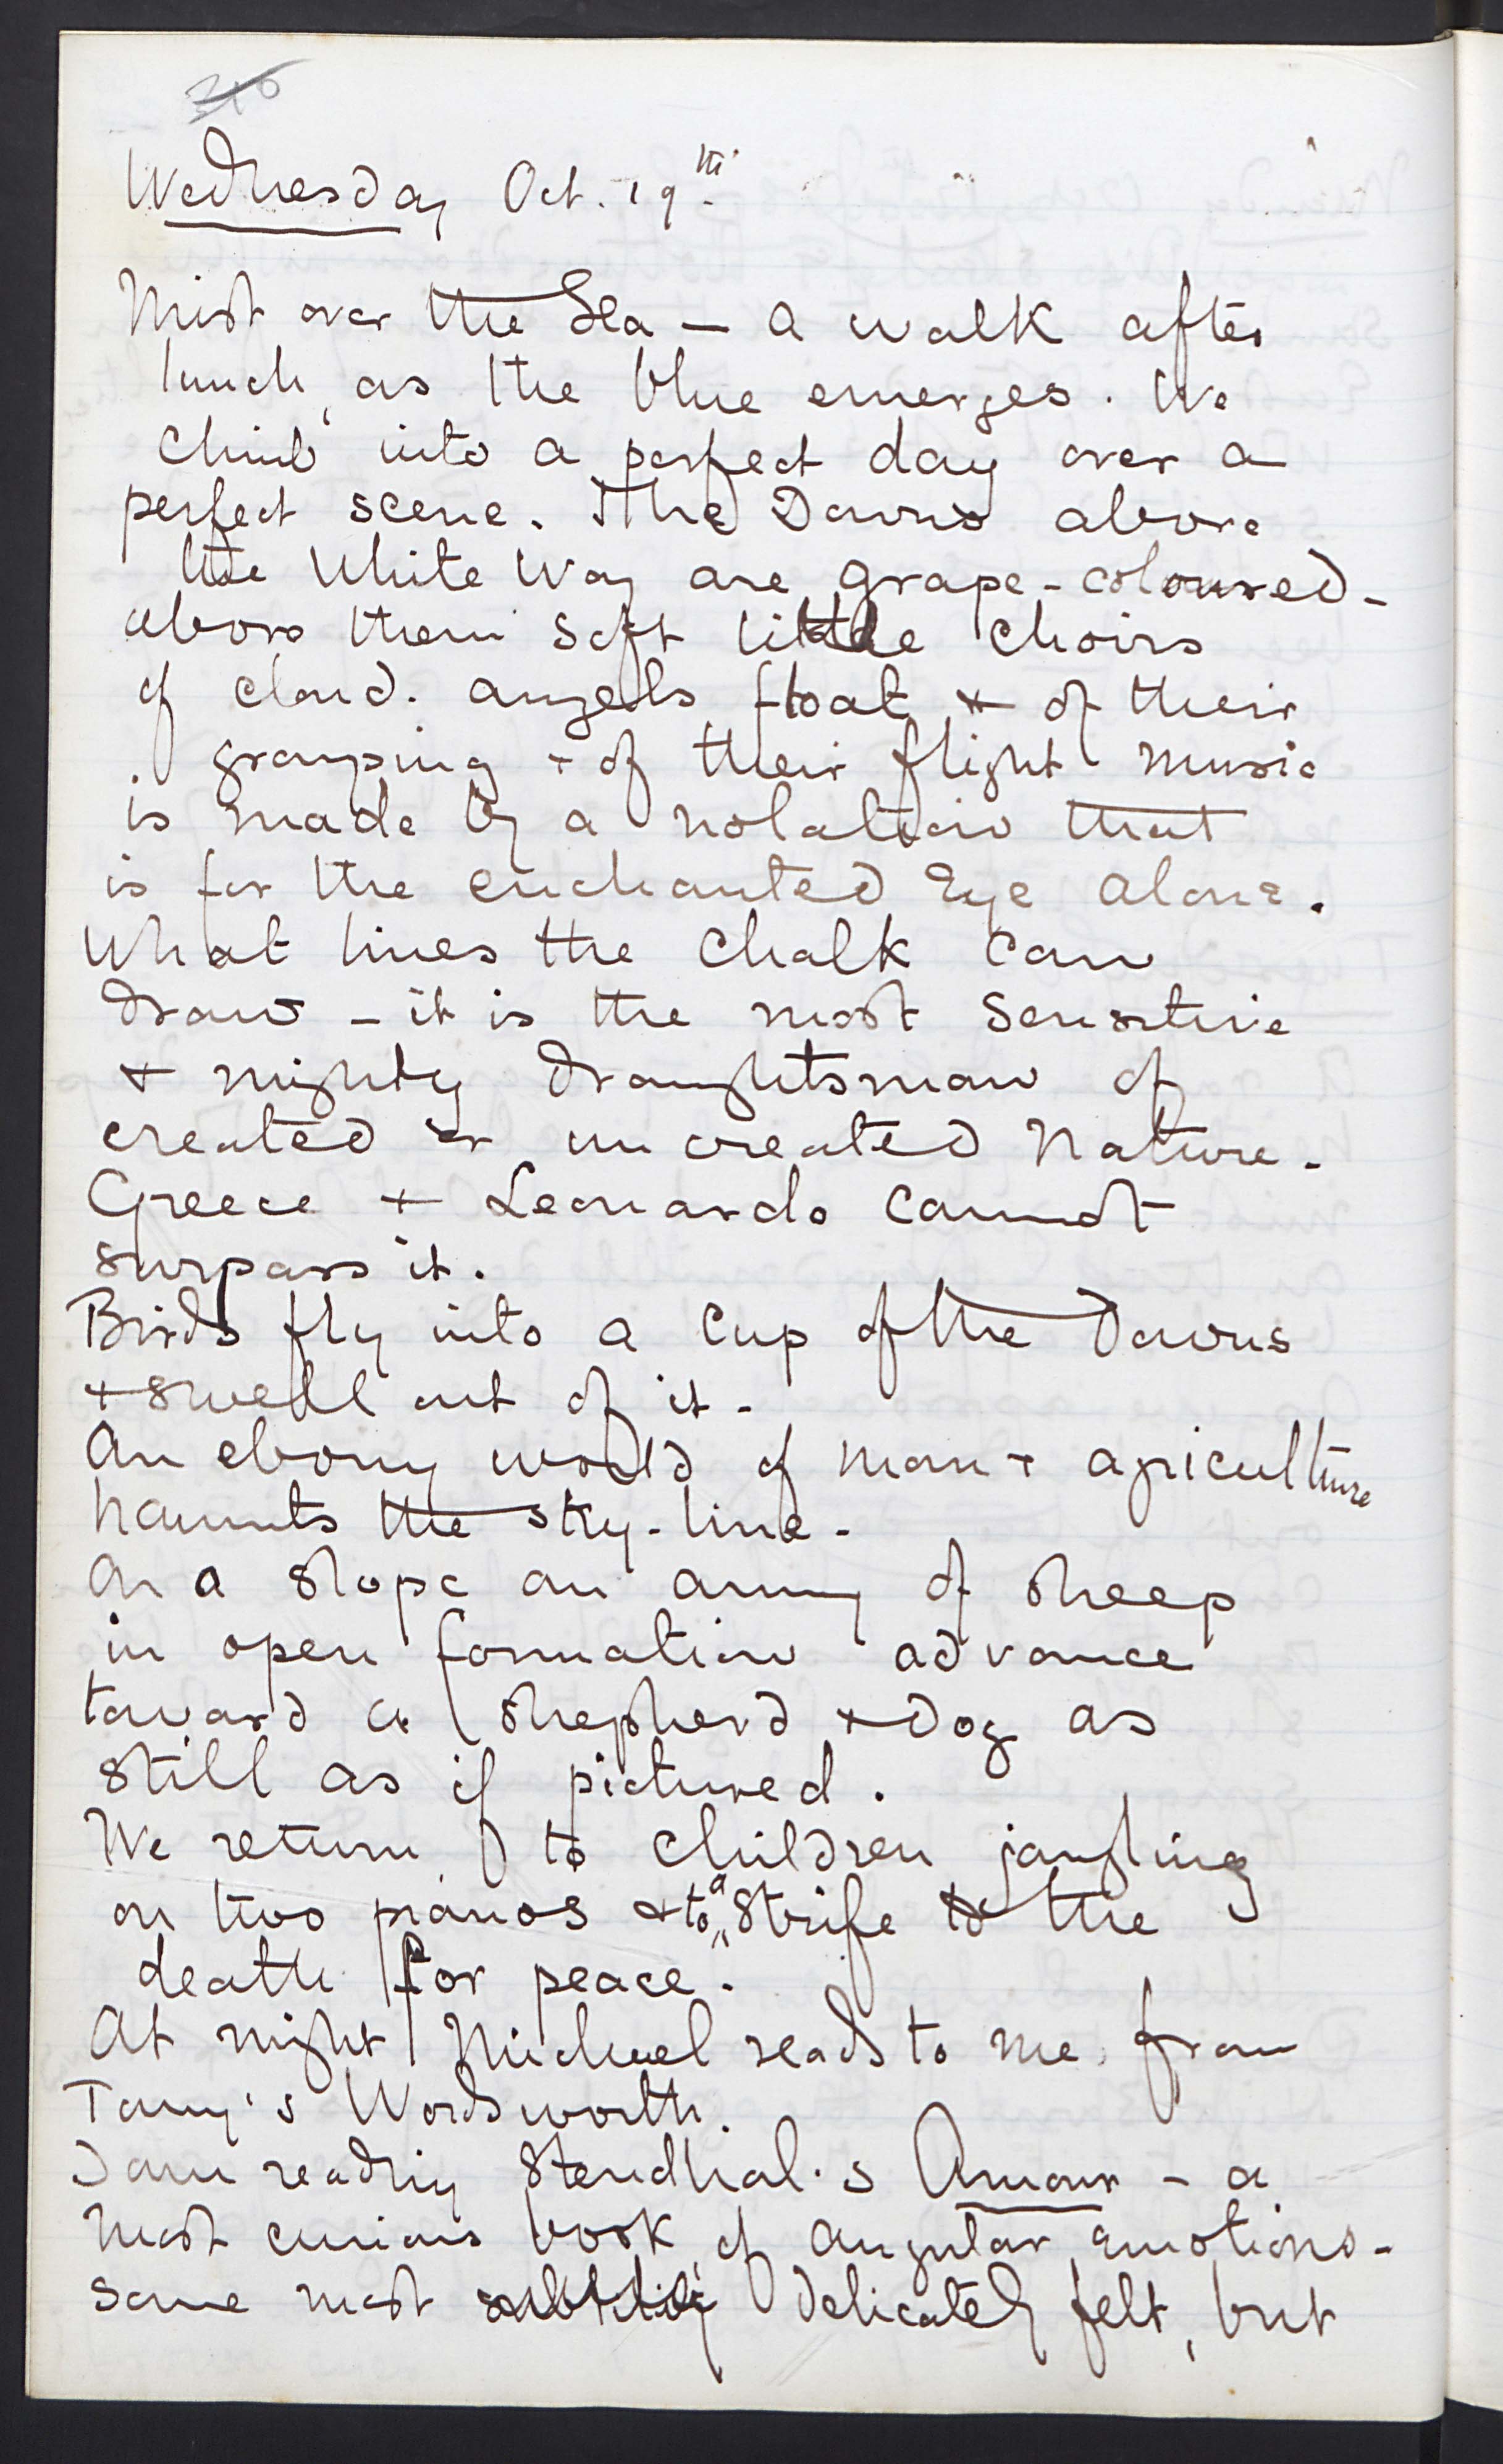 Wednesday Oct. 19th.
Mist over the Sea — a walk after
lunch, as the blue emerges. We
climb into a perfect day over a
perfect scene. The Downs above
the White Way are grape-coloured -
above them soft little choirs
of cloud. angels float & of their
grouping & of their flight music
is made by a notation that
is for the enchanted Eye alone.
What lines the Chalk can
draw - it is the most sensitive
& mighty draughtsman of
created or uncreated Nature.
Greece & Leonardo cannot
surpass it.
Birds fly into a cup of the Downs
& swell out of it -
An ebony world of man & agriculture
haunts the sky-line -
On a slope an army of sheep
in open formation advance
toward a shepherd & dog as
still as if pictured.
We return to children jangling
on two pianos & to a strife to the
death for peace.
At night Michael reads to me from
Tomy's Wordsworth.
I am reading Stendhal's Amour - a
most curious book of angular emotions -
some most delicately felt, but